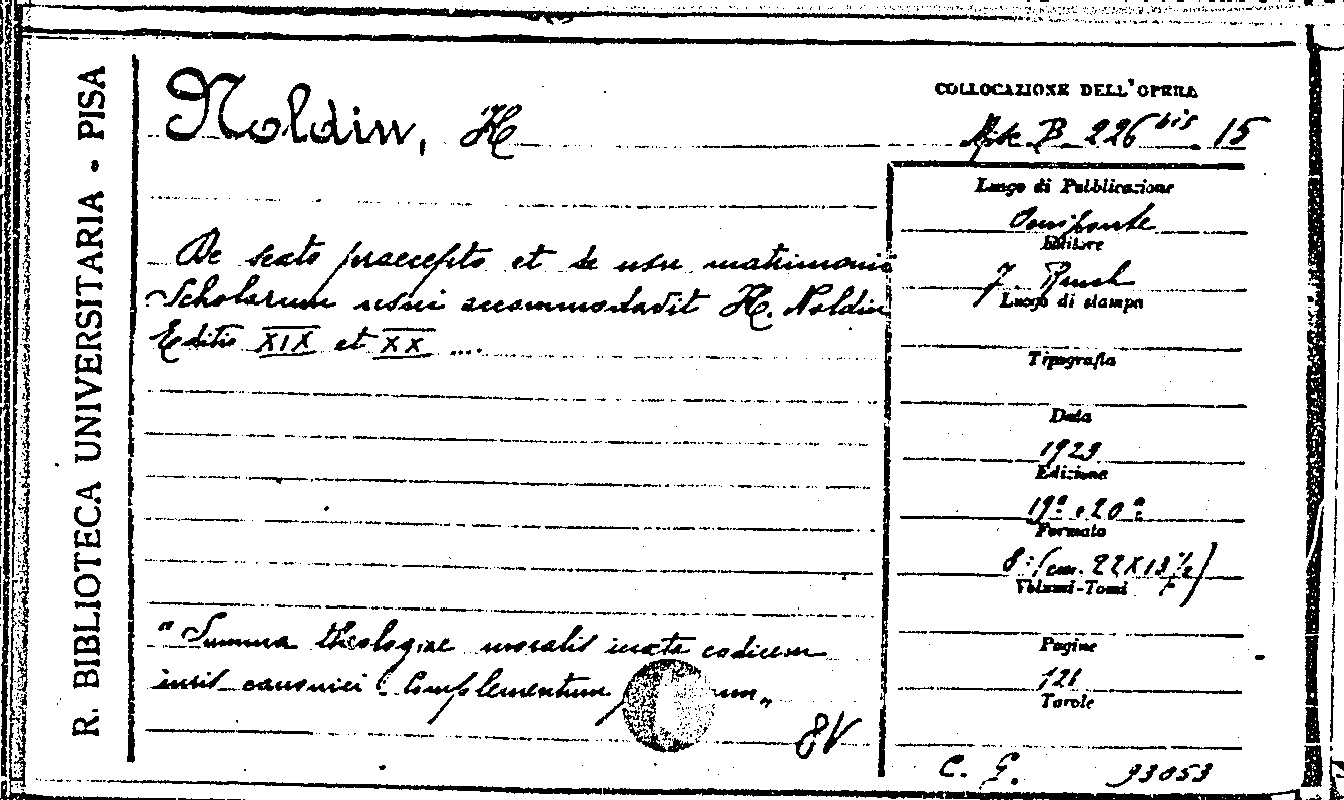 R. BIBLIOTECA UNIVERSITARIA - PISA
Noldin, H
COLLOCAZIONE DELL'OPERA
B 226 bis 15
De sexto praecepto et de usu matrimonii
Scholarum usui accommodavit H. Noldin
Editio XIX et XX ....
"Summa theologiae moralis iuxta codicem
iuris canonici. Complementum um"
8V
Luogo di Pubblicazione
Oeniponte
Editore
J. Rauch
Luogo di stampa
Tipografia
Data
1923
Edizione
19ª e 20ª
Formato
8° (cm. 22X13½)
Volumi-Tomi
Pagine
121
Tavole
C. G. 93053